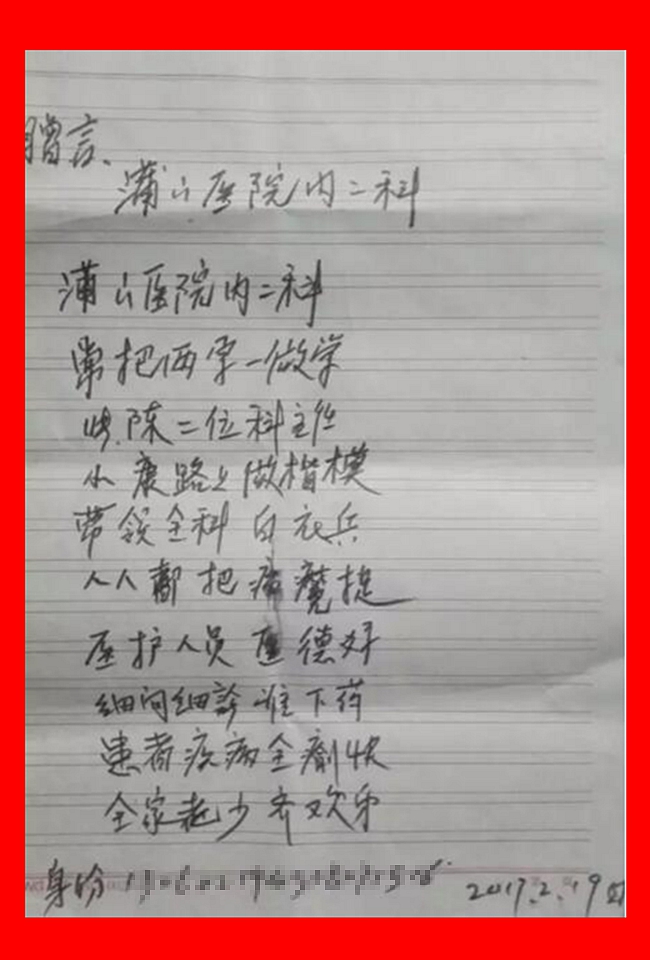 赠言、
蒲山医院内二科
蒲山医院内二科
常把两学一做学
陈二位科主任
小康路上做楷模
带领全科白衣兵
人人都把病魔捉
医护人员医德好
细问细诊准下药
患者疾病全癒快
全家老少齐欢乐
身份 2017.2.19日